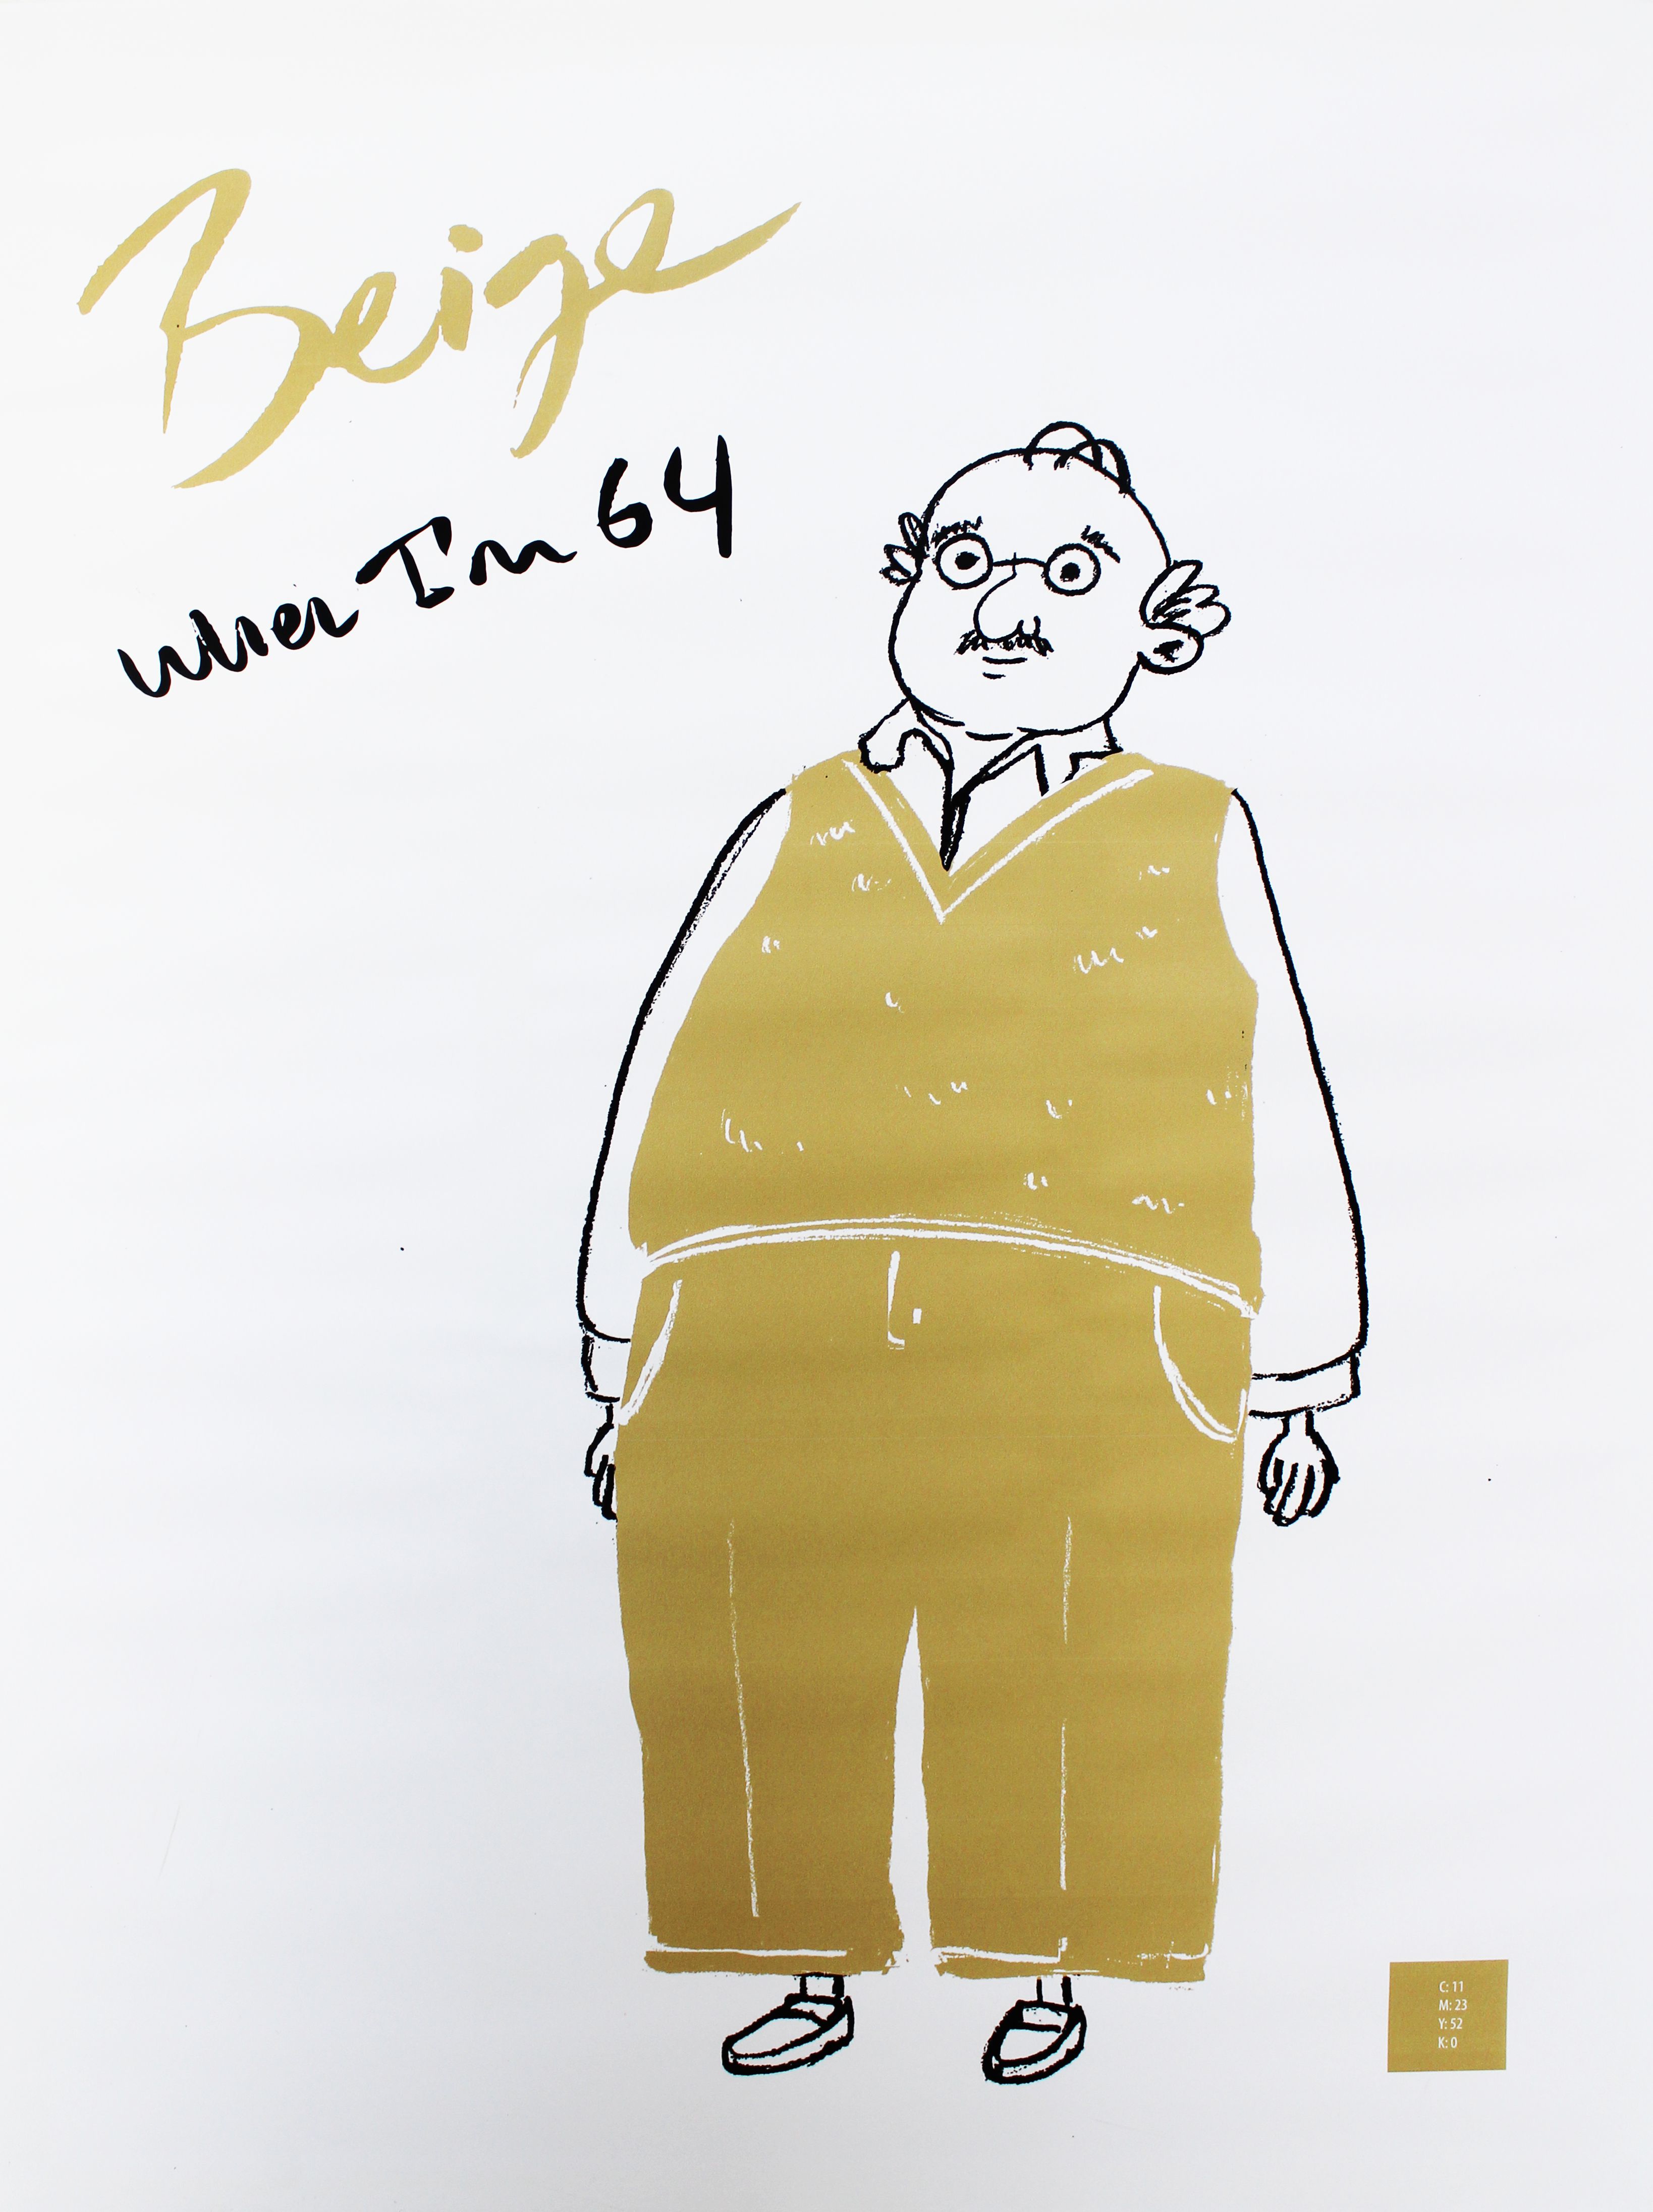 Beige
When I'm 64
C: 11
M: 23
Y: 52
K: 0